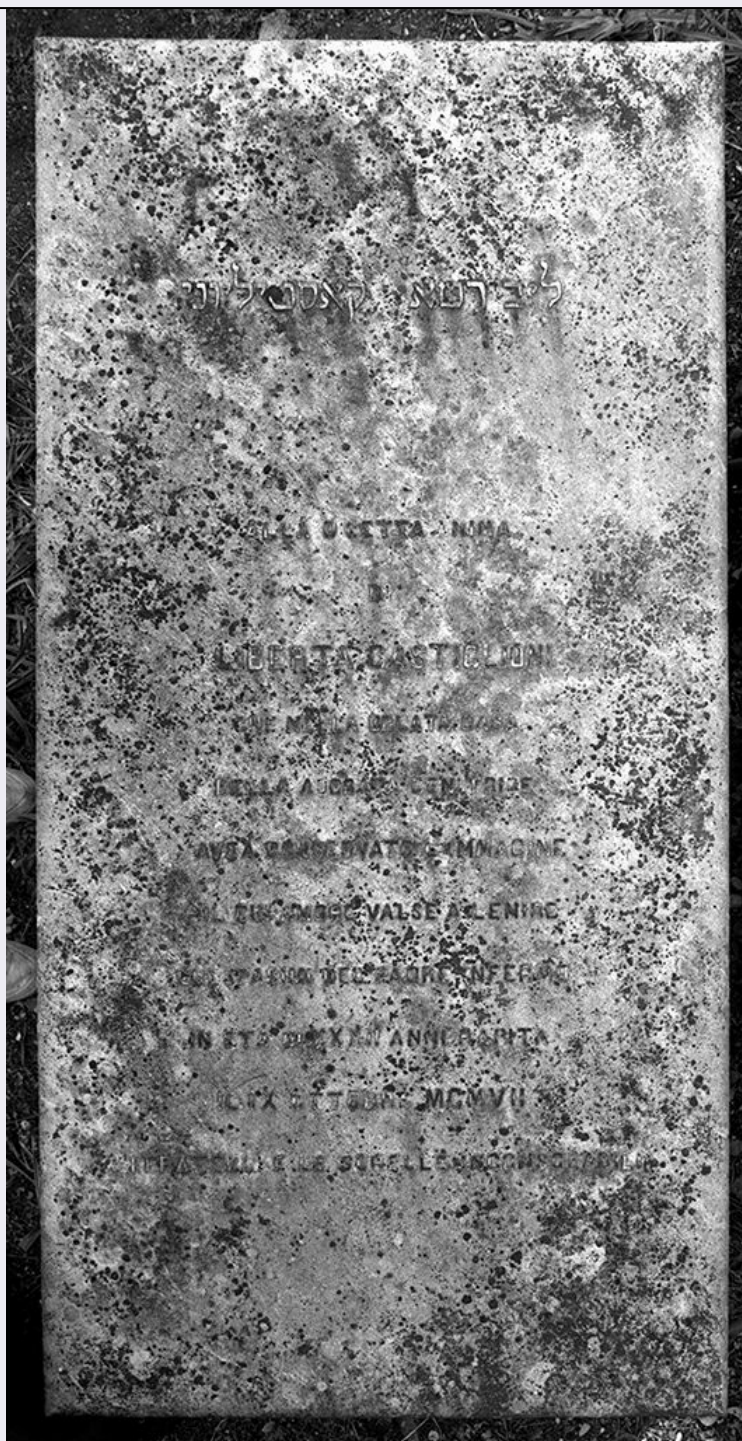 ליבירטא קאסטיליוני
ALLA DILETTA ANIMA
DI
LIBERTÀ CASTIGLIONI
CHE NELLA
DELLA ADORATA GENITRICE
AVEA CONSERVATO L'IMMAGINE
E IL CUI AMORE VALSE A LENIRE
DEL PADRE INFERMO
IN ETÀ DI ANNI RAPITA
IL IX OTTOBRE MCMVII
I FRATELLI E LE SORELLE